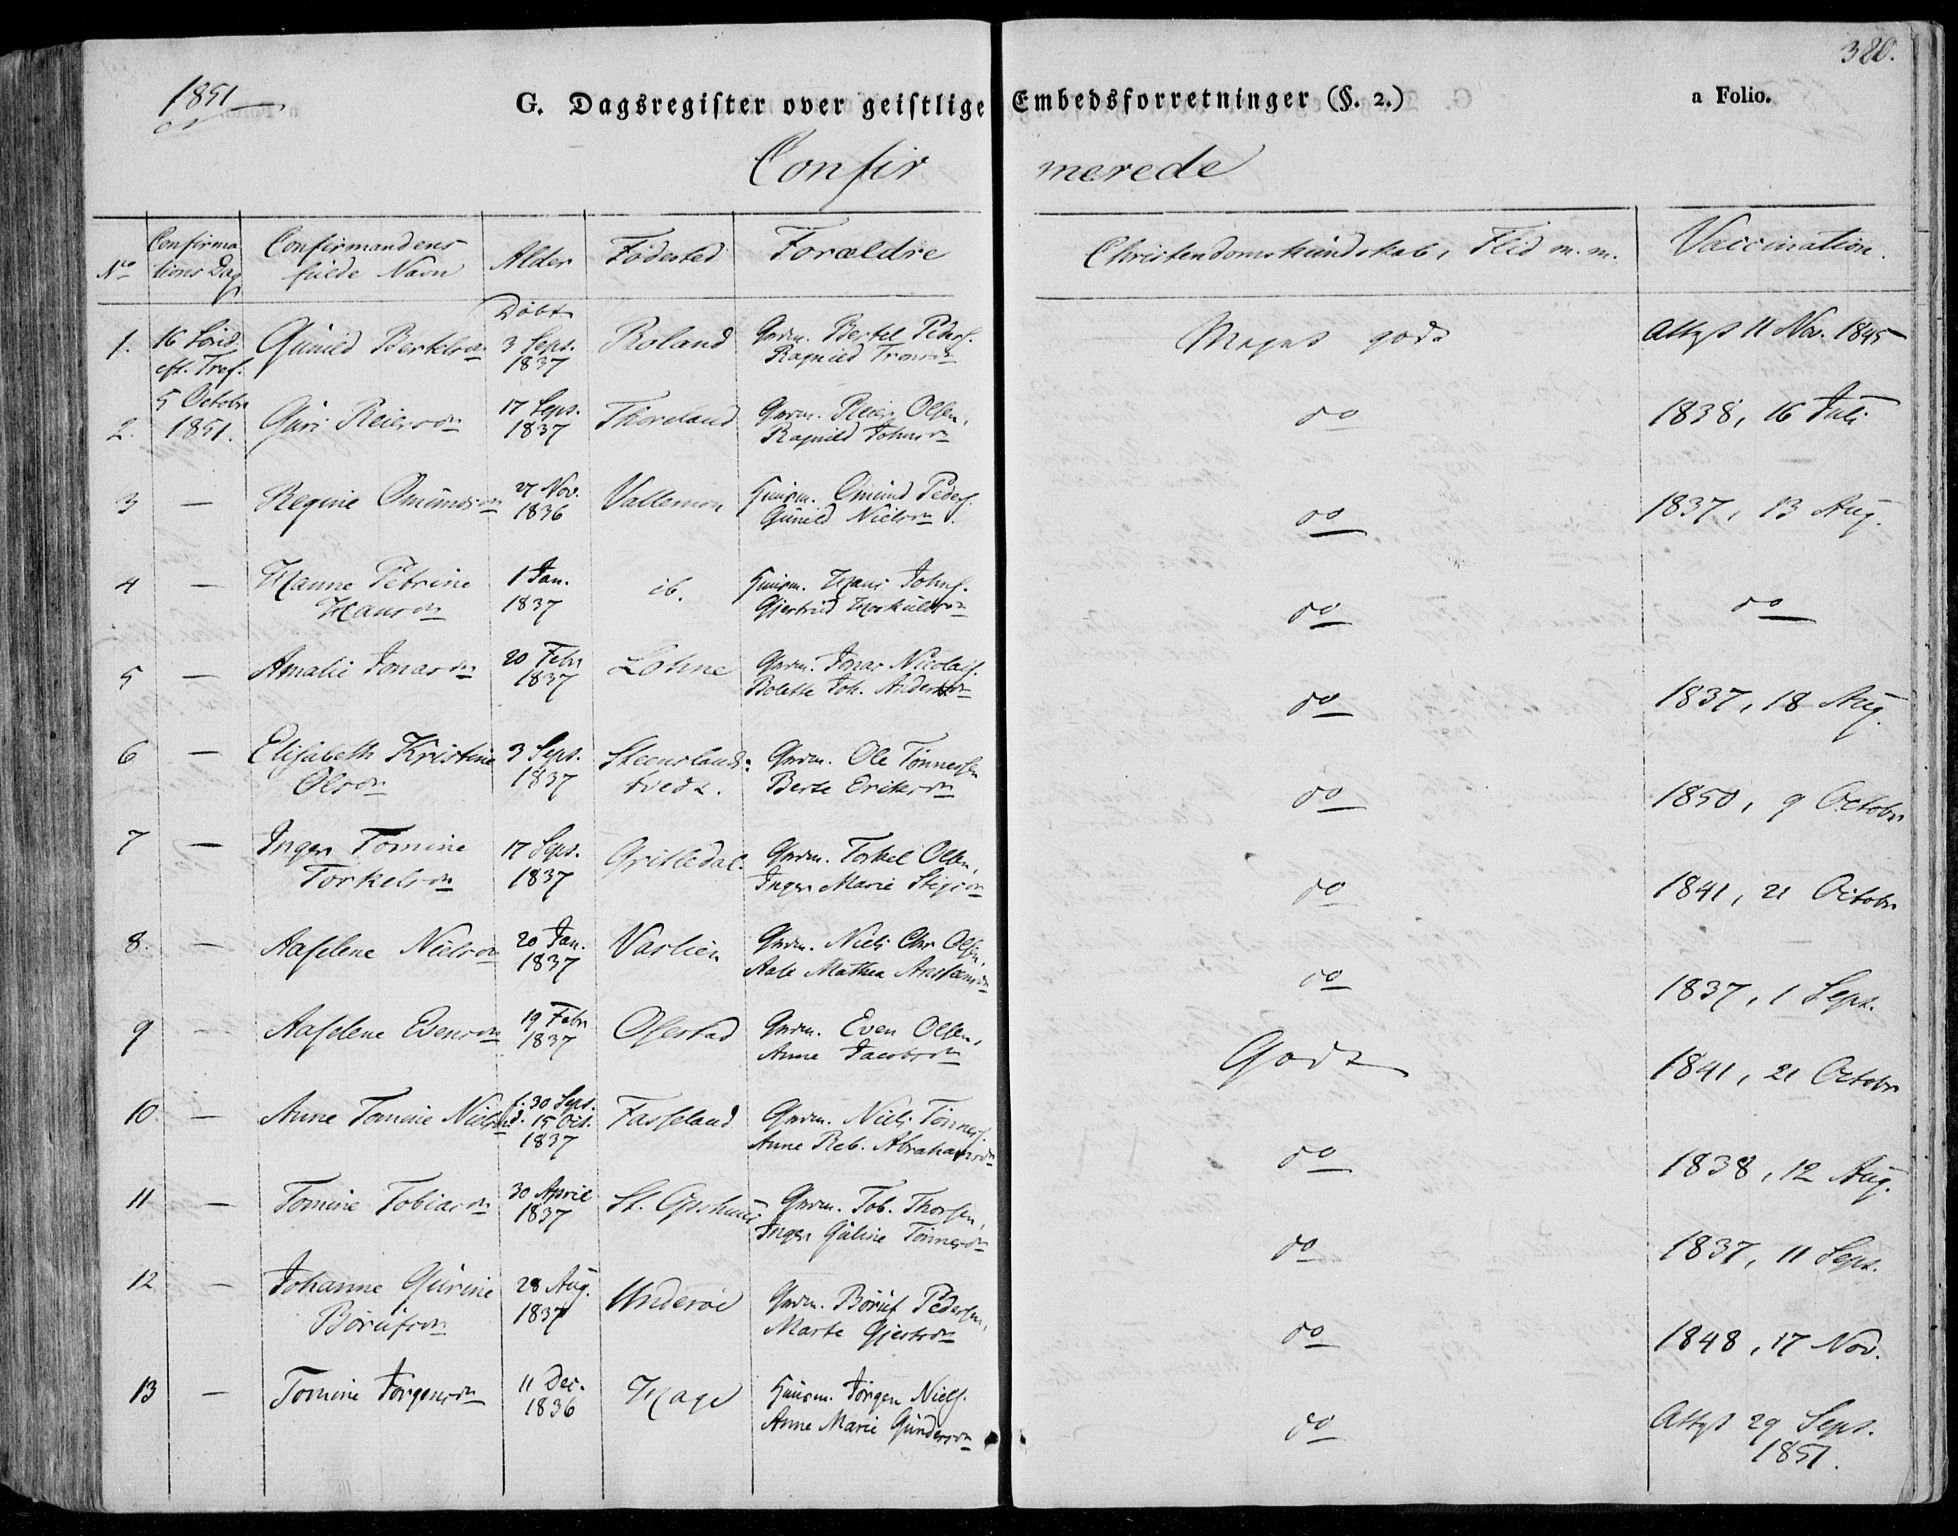 1851
380.
G. Dagsregister over geistlige Embedsforretninger (§. 2.)
a Folio.
Confirmerede
No
Confirmations Dag
Confirmandens fulde Navn
Alder
Födested
Forældre
Christendomskundskab, Flid m. m.
Vaccination.
Döbt
1. 16 Sönd. eft. Tref. Gunild Bertelsdn 3 Sept. 1837 Roland Grdm. Bertel Peders. Ragnild Meget godt Attest 11 Nov. 1845
5 Octobr
2. 1851. Guri Reiersdn 17 Sept. 1837 Thoreland Grdm. Reier Olsen, Ragnild Johnsdn do 1838, 16 Juli
3 — Regine Omundsdn 27 Nov. 1836 Vallemon Huusm. Omund Peders. Gunild Nielsdn. do 1837, 13 Aug.
4 — Hanne Petrine Hansdn 1 Jan. 1837 ib. Huusm. Hans Johns. Gjertrud do do
5 — Amalie Jonasdn 20 Febr 1837 Lohne Grdm. Jonas Nicolais. Bolette Joh. Andersdn do 1837, 18 Aug.
6 — Elisabeth Kristine Olsdn 3 Sept. 1837 Steenslandstvedt. Grdm. Ole Tönnessen Berte Eriksdn do 1850, 9 Octobr
7 — Inger Tomine Torkelsdn 17 Sept. 1837 Gritledal. Grdm. Torkel Olsen, Inger Marie Stigsdn do 1841, 21 Octobr
8. — Aaselene Nielsdn 20 Jan. 1837 Vaslien Grdm. Niels Chr Olsen, Aale Mathea do 1837, 1 Sept.
9 — Aaselene Evensdn 19 Febr 1837 Ofestad Grdm. Even Olsen, Anne Jacobsdn Godt 1841, 21 Octobr
10. — Anne Tomine Nielsdn f. 30 Sept. d. 15 Oct. 1837 Fasseland Grdm. Niels Tönness. Anne Reb. Abrahamsdn do 1838, 12 Aug.
11 — Tomine Tobiasdn 30 April 1837 St. Grdm. Tob. Thorsen, Inger Guline Tönnesdn do 1837, 11 Sept.
12 — Johanne Gurine Börufsdn 28 Aug. 1837 Underöe Grdm. Böruf Pedersen, Marte Gjertsdn do 1848, 17 Nov.
13 — Tomine Jörgensdn 11 Dec. 1836 Hage Huusm. Jörgen Niels. Anne Marie Gundersdn do Attest 29 Sept. 1851.